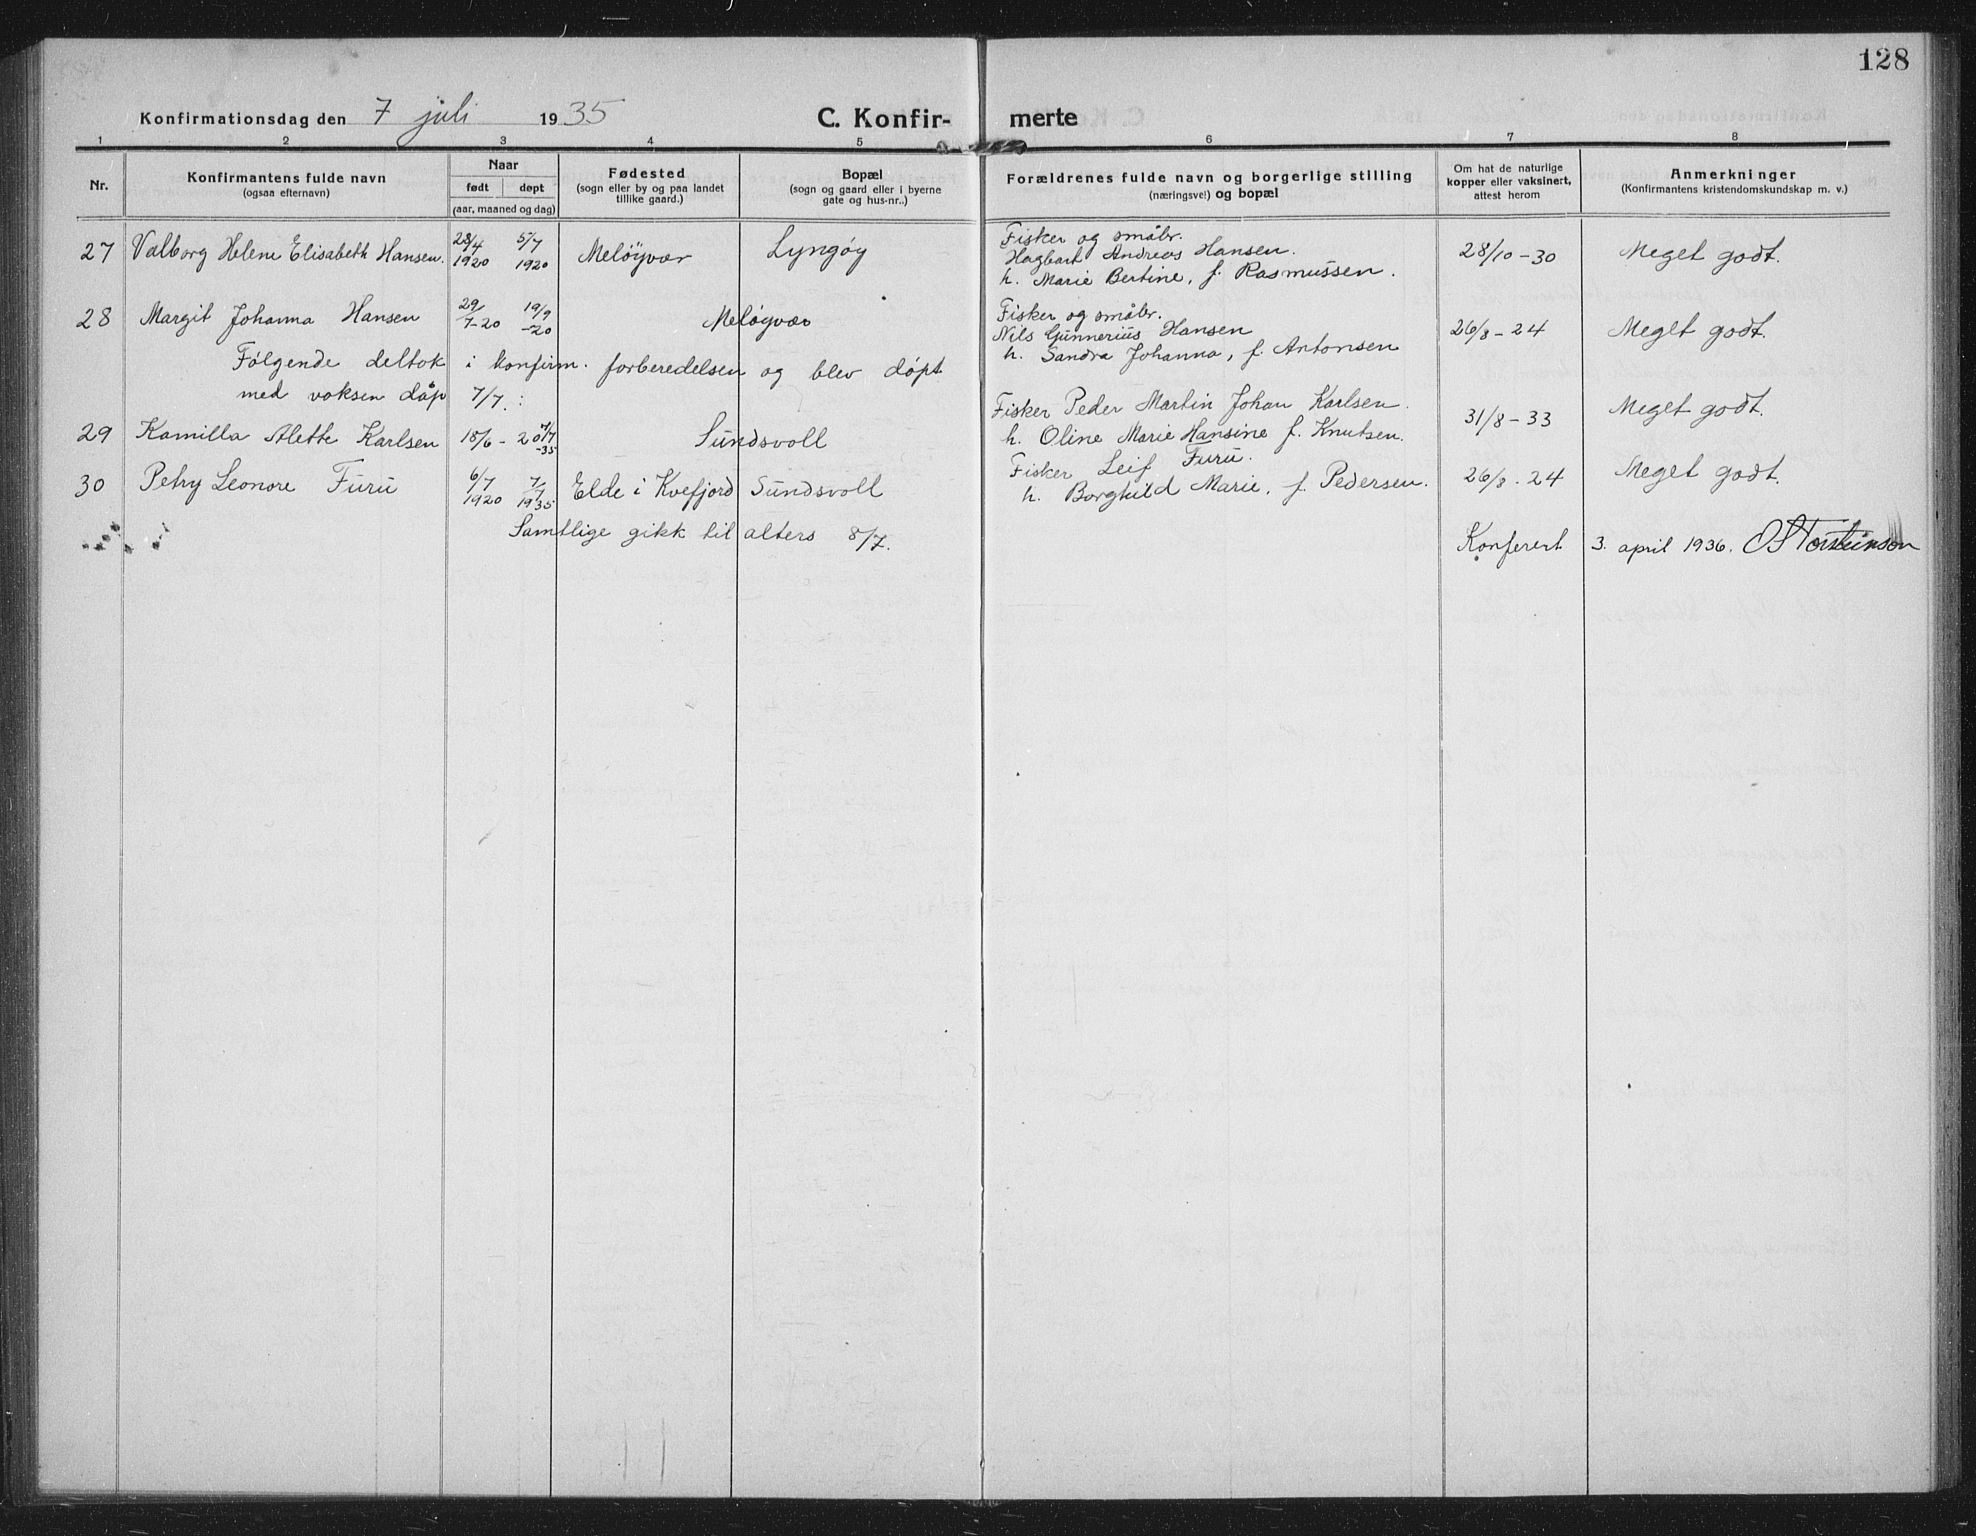 128
Konfirmationsdag den 7 juli 1935 C. Konfir- merte
1 2 3 4 5 6 7 8
Nr. Konfirmantens fulde navn (ogsaa efternavn) Naar født døpt (aar, maaned og dag) Fødested (sogn eller by og paa landet tillike gaard.) Bopæl (sogn og gaard eller i byerne gate og hus-nr..) Forældrenes fulde navn og borgerlige stilling (næringsvei) og bopæl Om hat de naturlige kopper eller vaksinert, attest herom Anmerkninger (Konfirmantens kristendomskundskap m. v.)
27 Valborg Helene Elisabeth Hansen. 28/4 1920 5/7 1920 Meløyvær Lyngøy Fisker og småbr. 28/10-30 Meget godt.
Hagbart Andreas Hansen.
h. Marie Bertine, f. Rasmussen.
28 Margit Johanna Hansen 29/7-20 19/9-20 Meløyvær Fisker og småbr. 26/8-24 Meget godt.
Nils Gunnerius Hansen
h. Sandra Johanna, f. Antonsen
Følgende deltok i konfirm. forberedelsen og blev døpt
med voksen dåp 7/7. :
29 Kamilla Alette Karlsen 18/6-20 7/7-35 Sundsvoll Fisker Peder Martin Johan Karlsen. 31/8-33 Meget godt.
h. Oline Marie Hansine f. Knutsen.
30 Petry Leonore Furu 6/7 1920 7/7 1935 Elde i Kvefjord Sundsvoll Fisker Leif Furu. 26/8-24 Meget godt.
h. Borghild Marie, f. Pedersen.
Samtlige gikk til alters 8/7.
Konferert 3. april 1936. O Torsteinson